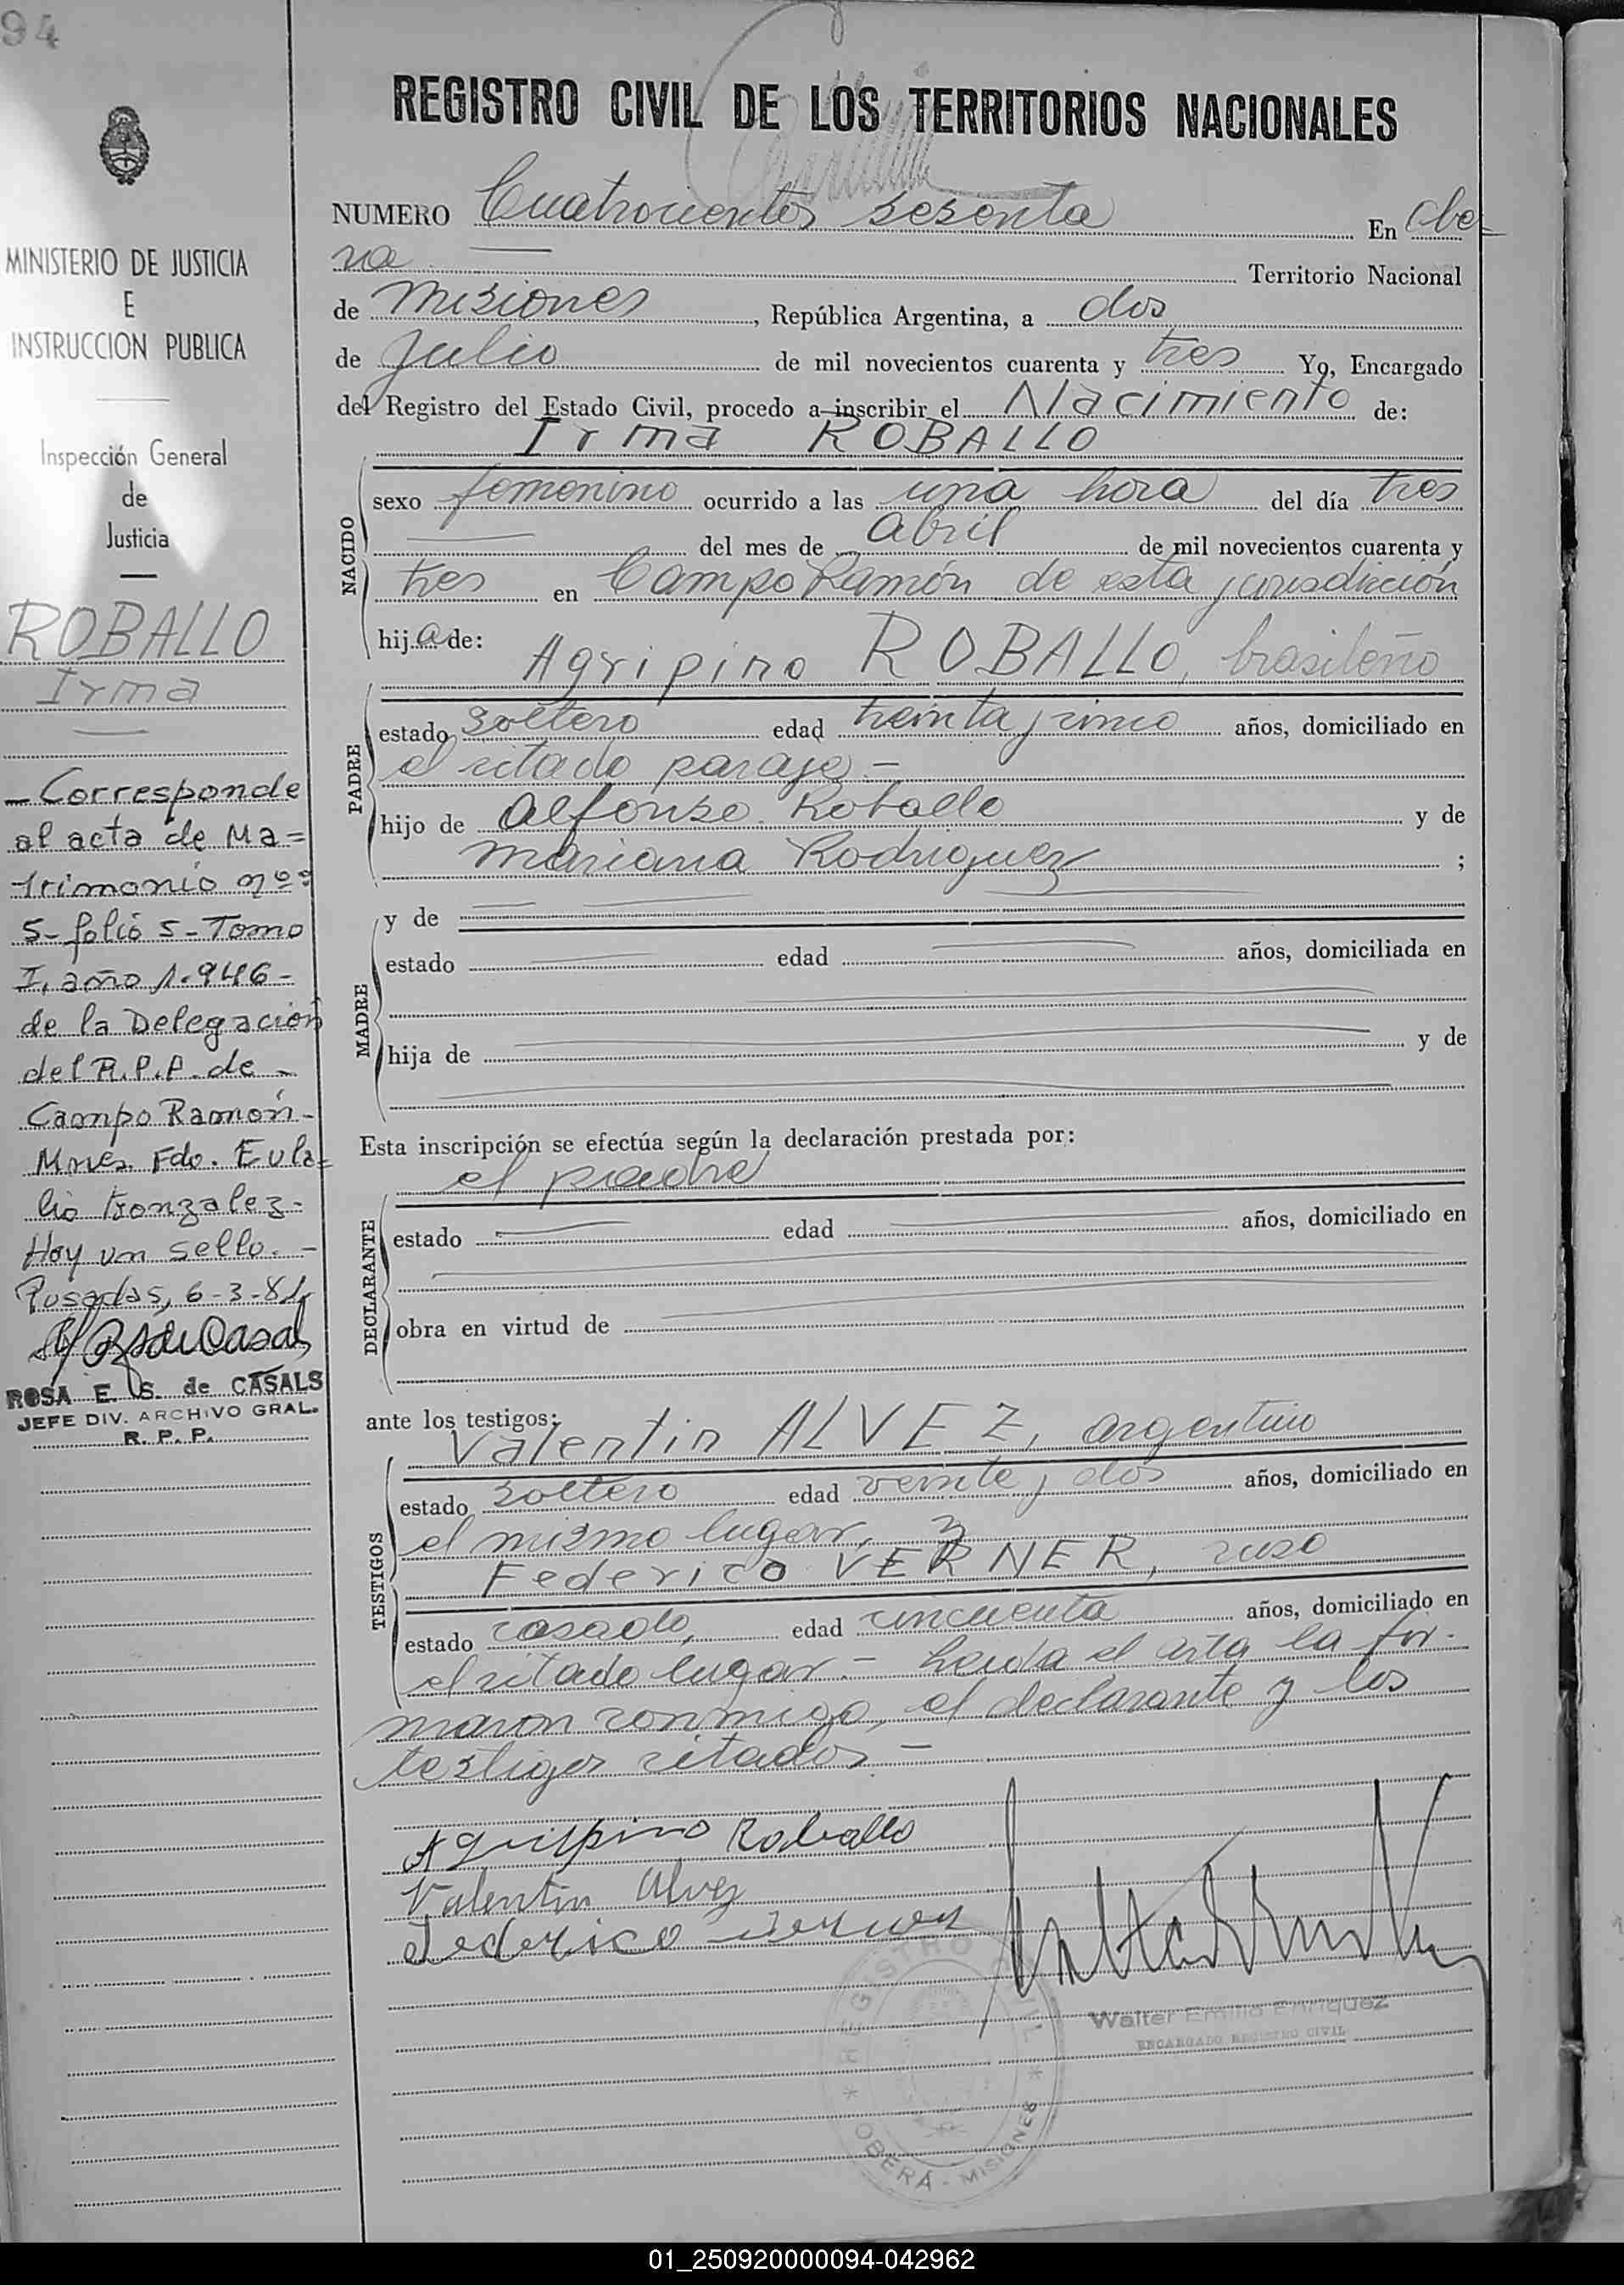 94
MINISTERIO DE JUSTICIA
E
INSTRUCCION PUBLICA
Inspección General
de
Justicia
ROBALLO
Irma
- Corresponde
al acta de Ma=
trimonio nº
5- folio 5- Tomo
I, año 1.946-
de la Delegación
del R.P.P. de -
Campo Ramón-
Mnes. Fdo. Eula=
lio Gonzalez-
Hay un sello. -
Posadas, 6-3-81
ROSA E. S. de CASALS
JEFE DIV. ARCHIVO GRAL.
R. P. P.
REGISTRO CIVIL DE LOS TERRITORIOS NACIONALES
NUMERO Cuatrocientos sesenta En Obe-
ra Territorio Nacional
de Misiones, República Argentina, a dos
de Julio de mil novecientos cuarenta y tres Yo, Encargado
del Registro del Estado Civil, procedo a inscribir el Nacimiento de:
Irma ROBALLO
NACIDO
sexo femenino ocurrido a las una hora del día tres
del mes de abril de mil novecientos cuarenta y
tres en Campo Ramón de esta jurisdicción
hija de:
Agripino ROBALLO, brasileño
PADRE
estado soltero edad treinta y cinco años, domiciliado en
el citado paraje -
hijo de Alfonso Roballo y de
Mariana Rodriguez ;
MADRE
y de
estado edad años, domiciliada en
hija de y de
Esta inscripción se efectúa según la declaración prestada por:
el padre
DECLARANTE
estado edad años, domiciliado en
obra en virtud de
ante los testigos:
Valentin ALVEZ, argentino
TESTIGOS
estado soltero edad veinte y dos años, domiciliado en
el mismo lugar, y
Federico VERNER, ruso
estado casado, edad cincuenta años, domiciliado en
el citado lugar.- Leida el acta la fir-
maron conmigo, el declarante y los
testigos citados -
Agripino Roballo
Valentin Alvez
Federico Verner
Walter Emilio Enriquez
ENCARGADO REGISTRO CIVIL
REGISTRO CIVIL * OBERÁ - MISIONES *
01_250920000094-042962